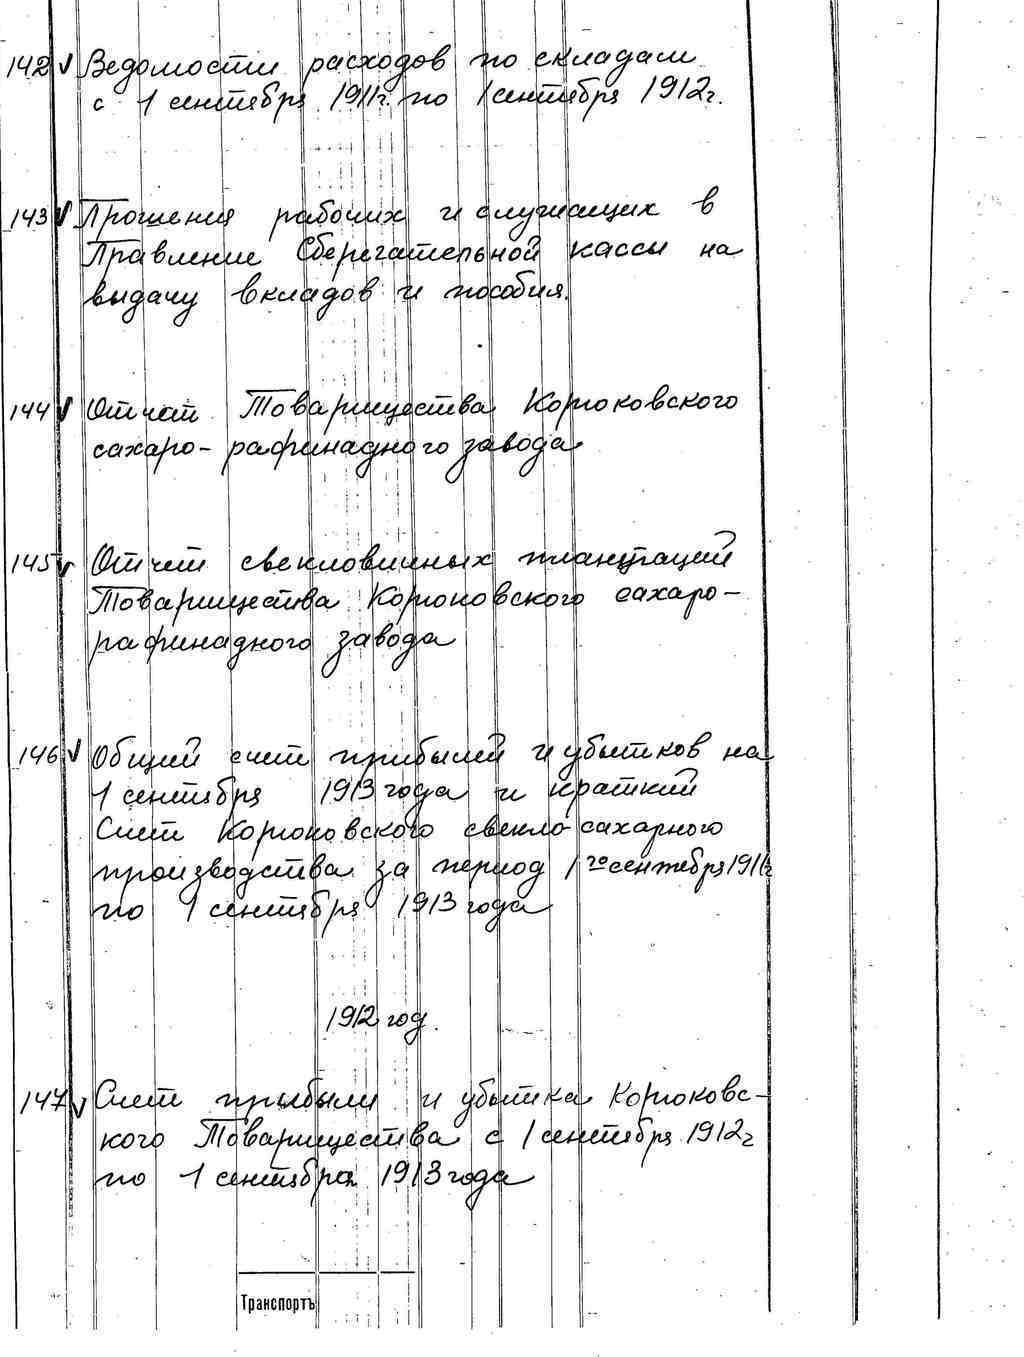 142 ✓ Ведомости расходов по складам
с 1 сентября 1911г. по 1 сентября 1912г.
143 ✓ Прошения рабочих и служащих в
Правление Сберегательной кассы на
выдачу вкладов и пособия.
144 ✓ Отчет Товарищества Корюковского
сахаро-рафинадного завода
145 ✓ Отчет свекловичных плантаций
Товарищества Корюковского сахаро-
рафинадного завода
146 ✓ Общий счет прибылей и убытков на
1 сентября 1913 года и краткий
Счет Корюковского свекло-сахарного
производства за период 1го сентября 1911г
по 1 сентября 1913 года
1912 год.
147 ✓ Счет прибыли и убытка Корюковс-
кого Товарищества с 1 сентября 1912г
по 1 сентября 1913 года
Транспортъ